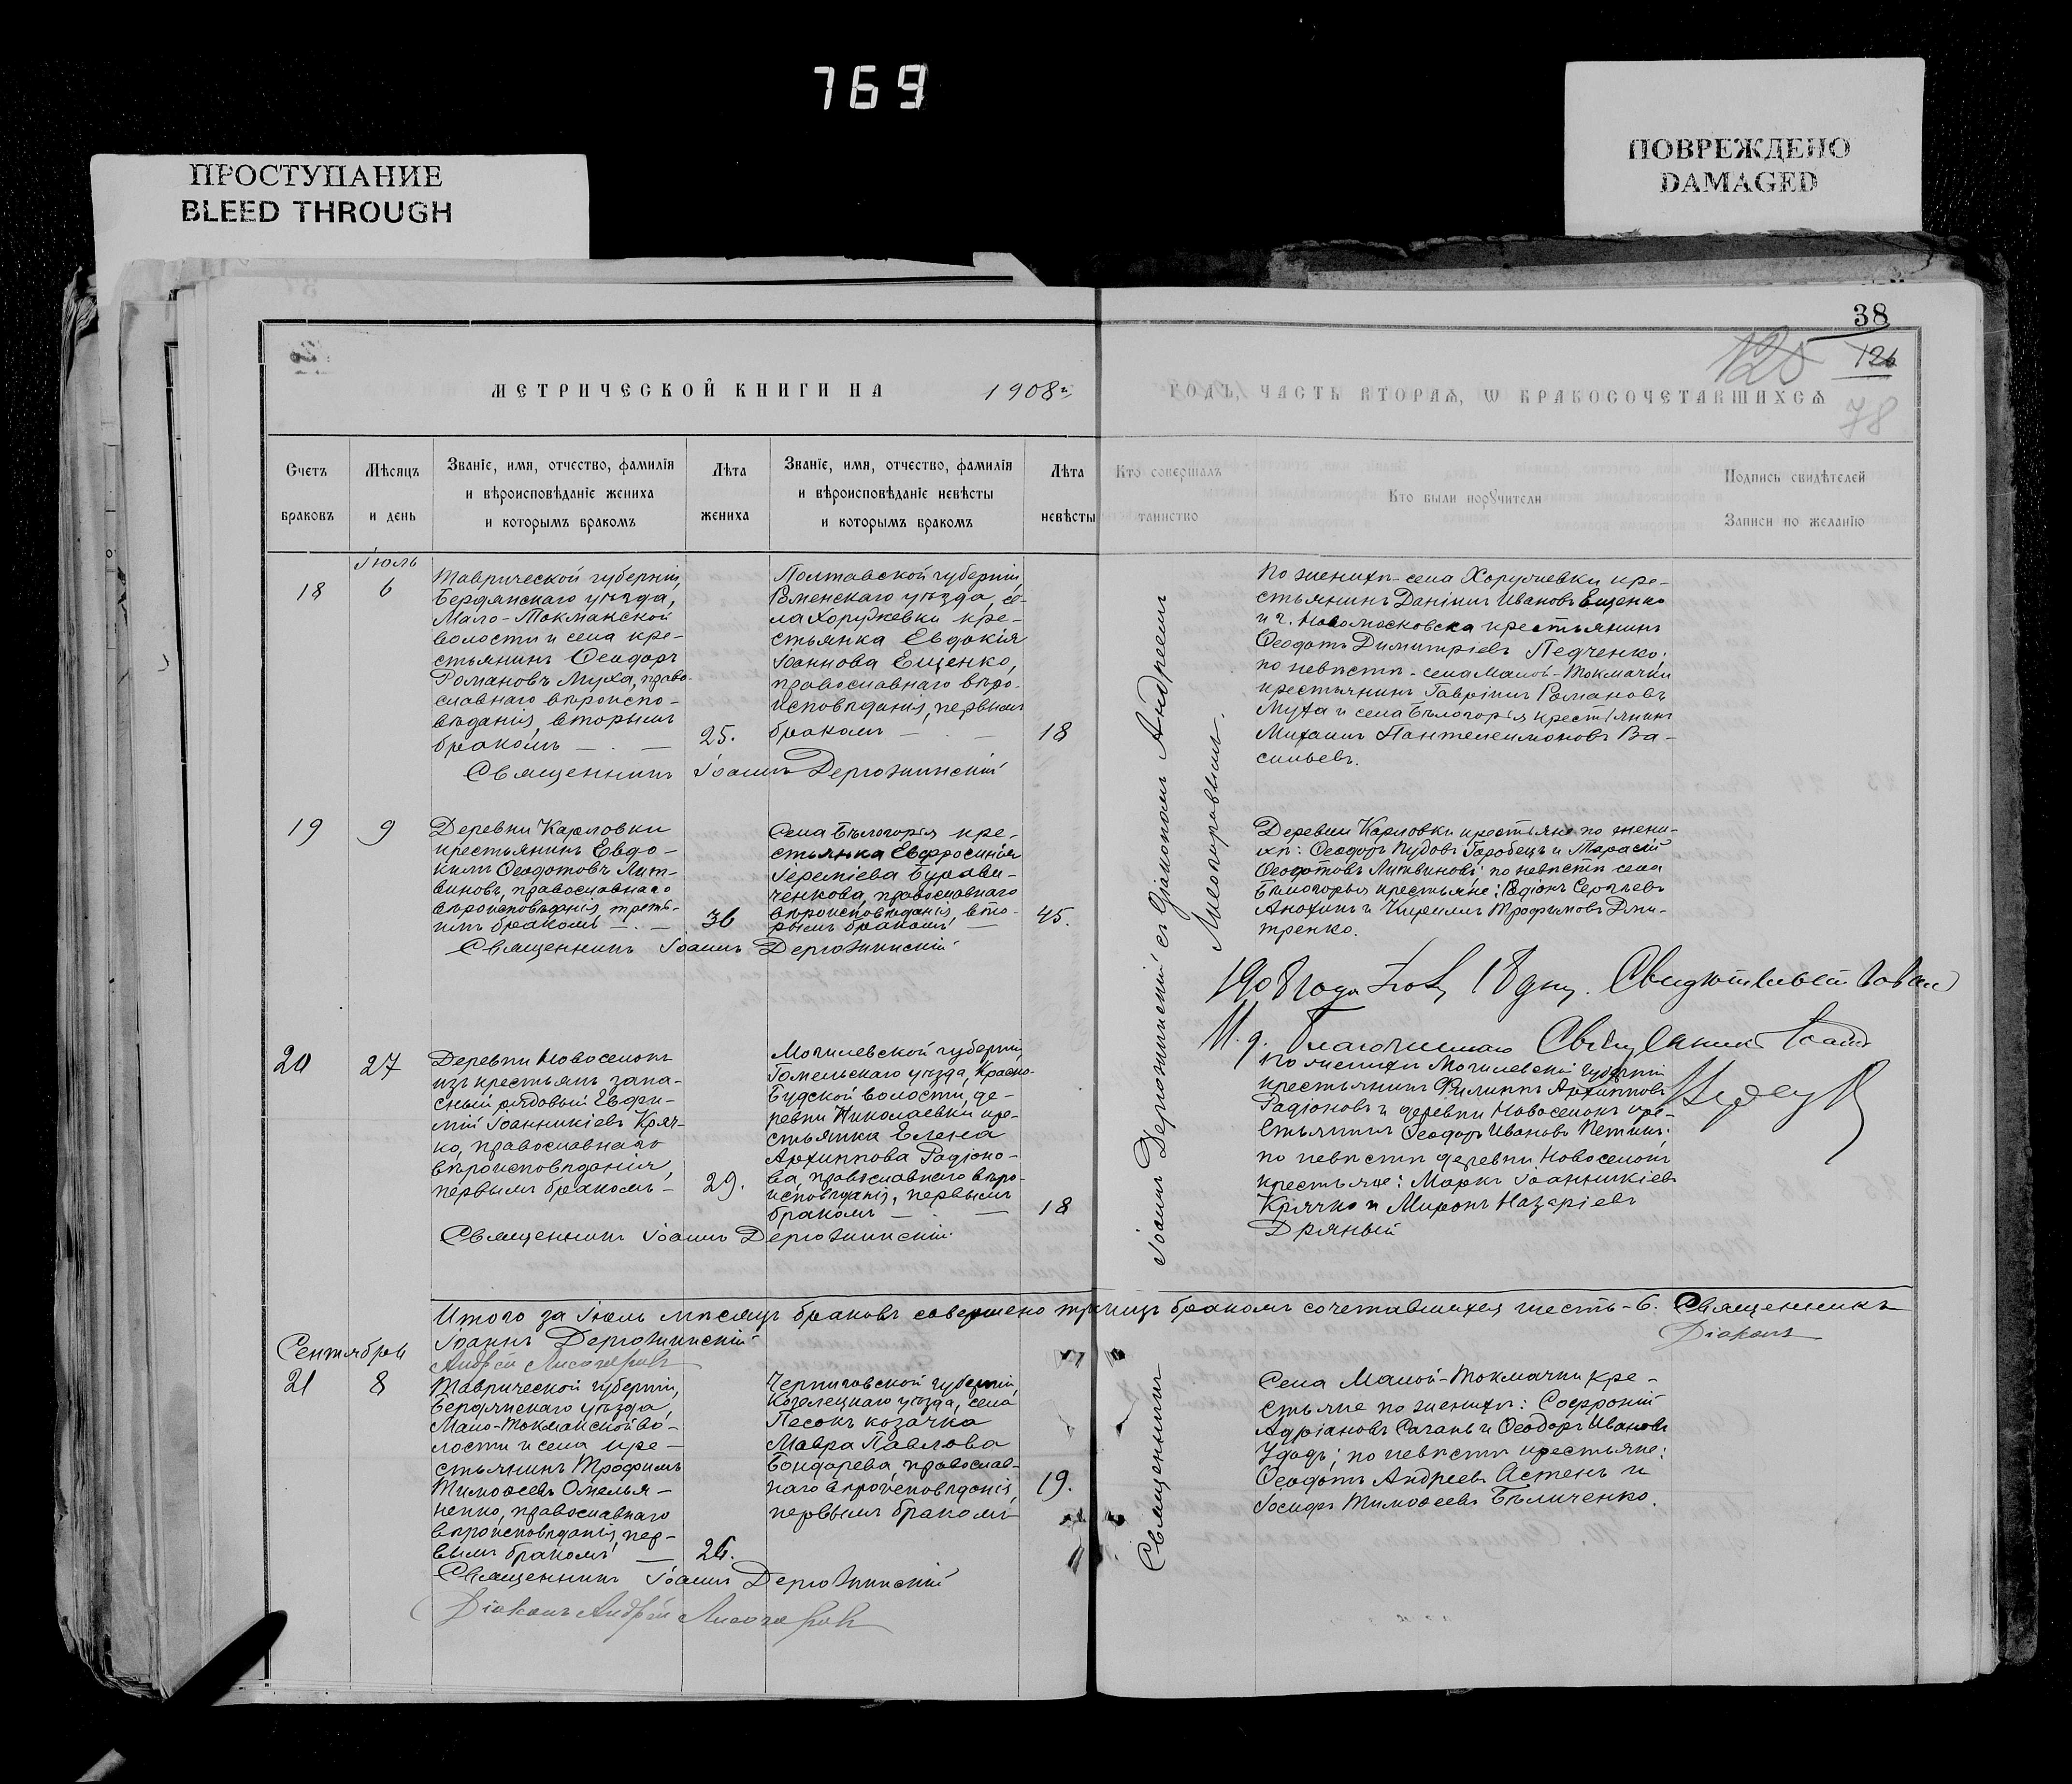 769
ПРОСТУПАНИЕ
BLEED THROUGH
ПОВРЕЖДЕНО
DAMAGED
38
125
126
78
МЕТРИЧЕСКОЙ КНИГИ НА 1908 г. ГОДЪ, ЧАСТЬ ВТОРАѦ, Ѡ БРАКОСОЧЕТАВШИХСѦ
Счетъ браковъ
Мѣсяцъ и день
Званіе, имя, отчество, фамилія
и вѣроисповѣданіе жениха
и которымъ бракомъ
Лѣта жениха
Званіе, имя, отчество, фамилія
и вѣроисповѣданіе невѣсты
и которымъ бракомъ
Лѣта невѣсты
Кто совершалъ таинство
Кто были поручители
Подпись свидѣтелей
Записи по желанію
Іюль
18
6
Таврической губерніи,
Бердянскаго уѣзда,
Мало-Токмакской
волости и села кре-
стьянинъ Ѳеодоръ
Романовъ Муха, право-
славнаго вѣроиспо-
вѣданія, вторымъ
бракомъ
25.
Полтавской губерніи,
Роменскаго уѣзда, се-
ла Хоружевки кре-
стьянка Евдокія
Іоаннова Ещенко,
православнаго вѣро-
исповѣданія, первымъ
бракомъ
18
По женихѣ - села Хоружевки кре-
стьянинъ Даніилъ Ивановъ Ещенко
и г. Новомосковска крестьянинъ
Ѳеодотъ Димитріевъ Педченко;
по невѣстѣ - села Малой-Токмачки
крестьянинъ Гавріилъ Романовъ
Муха и села Бѣлогорья крестьянинъ
Михаилъ Пантелеимоновъ Ва-
сильевъ.
Священникъ Іоаннъ Держинскій
19
9
Деревни Карловки
крестьянинъ Евдо-
кимъ Ѳеодотовъ Лит-
виновъ, православнаго
вѣроисповѣданія, треть-
имъ бракомъ
36
Села Бѣлогорья кре-
стьянка Евфросинія
Іереміева Бурави-
ченкова, православнаго
вѣроисповѣданія, вто-
рымъ бракомъ
45.
Деревни Карловки крестьяне по жени-
хѣ: Ѳеодоръ Пудовъ Горобецъ и Тарасій
Ѳеодотовъ Литвиновъ; по невѣстѣ села
Бѣлогорья крестьяне: Родіонъ Сергѣевъ
Анохинъ и Кириллъ Трофимовъ Дми-
тренко.
Священникъ Іоаннъ Держинскій
1908 года 18 дня. Свидѣтельствовалъ
И. д. Благочиннаго Священникъ
20
27
Деревни Новоселокъ
изъ крестьянъ запа-
сный рядовый Евфи-
мій Іоанникіевъ Кряч-
ко, православнаго
вѣроисповѣданія,
первымъ бракомъ
29.
Могилевской губерніи,
Гомельскаго уѣзда, Красно-
Будской волости, де-
ревни Николаевки кре-
стьянка Елена
Архиппова Радіоно-
ва, православнаго вѣро-
исповѣданія, первымъ
бракомъ
18
По женихѣ Могилевской губерніи
крестьянинъ Филиппъ Архипповъ
Радіоновъ и деревни Новоселокъ кре-
стьянинъ Ѳеодоръ Ивановъ Петинъ;
по невѣстѣ деревни Новоселокъ
крестьяне: Маркъ Іоанникіевъ
Крячко и Миронъ Назаріевъ
Дряный
Священникъ Іоаннъ Держинскій
Іоаннъ Держинскій съ Діакономъ Андреемъ
Лисогоровымъ.
Итого за Іюль мѣсяцъ браковъ совершено три лицъ бракомъ сочетавшихся шесть - 6. Священникъ
Іоаннъ Держинскій
Діаконъ
Андрей Лисогоровъ
Сентябрь
21
8
Таврической губерніи,
Бердянскаго уѣзда,
Мало-Токмакской во-
лости и села кре-
стьянинъ Трофимъ
Тимоѳеевъ Омелья-
ненко, православнаго
вѣроисповѣданія, пер-
вымъ бракомъ
26.
Черниговской губерніи,
Козелецкаго уѣзда, села
Песокъ козачка
Мавра Павлова
Бондарева, православ-
наго вѣроисповѣданія,
первымъ бракомъ
19.
Священникъ
Села Малой-Токмачки кре-
стьяне по женихѣ: Софроній
Адріановъ Саганъ и Ѳеодоръ Ивановъ
Удодъ; по невѣстѣ крестьяне:
Ѳеодотъ Андреевъ Астенъ и
Іосифъ Тимоѳеевъ Бѣличенко.
Священникъ Іоаннъ Держинскій
Діаконъ Андрей Лисогоровъ